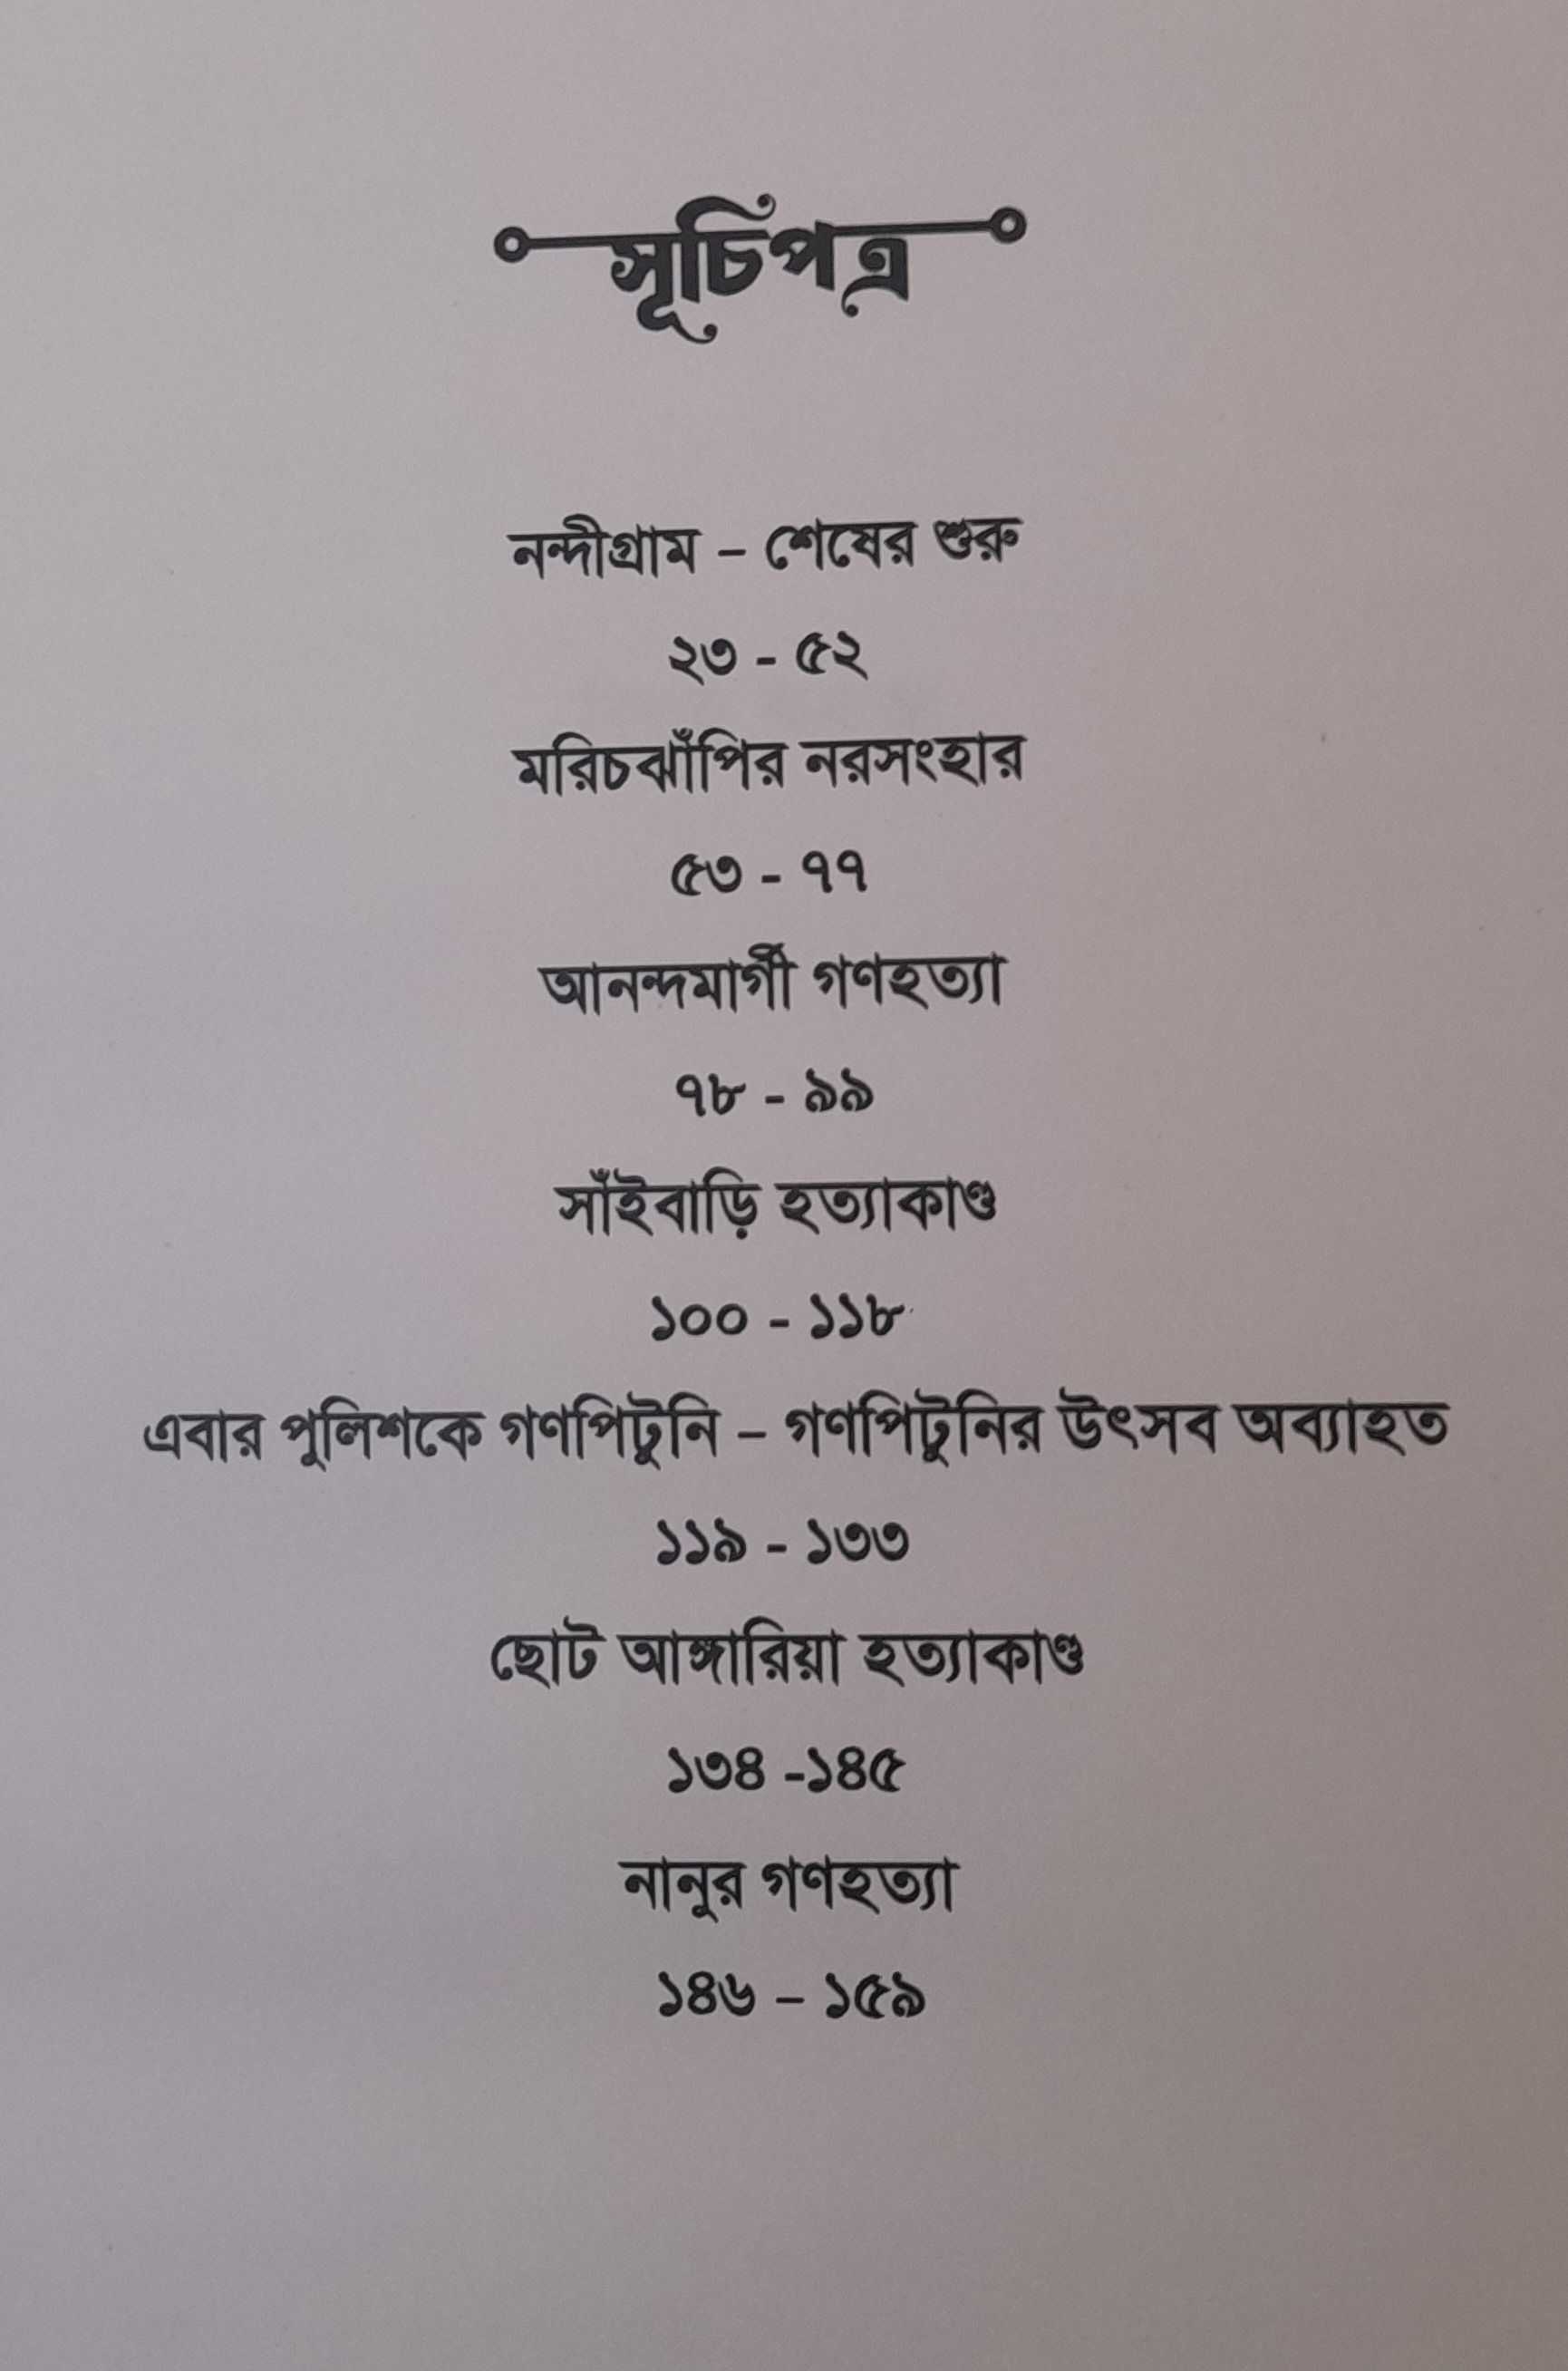 সূচিপত্র
নন্দীগ্রাম – শেষের শুরু
২৩ - ৫২
মরিচঝাঁপির নরসংহার
৫৩ - ৭৭
আনন্দমার্গী গণহত্যা
৭৮ - ৯৯
সাঁইবাড়ি হত্যাকাণ্ড
১০০ - ১১৮
এবার পুলিশকে গণপিটুনি – গণপিটুনির উৎসব অব্যাহত
১১৯ - ১৩৩
ছোট আঙ্গারিয়া হত্যাকাণ্ড
১৩৪ -১৪৫
নানুর গণহত্যা
১৪৬ – ১৫৯